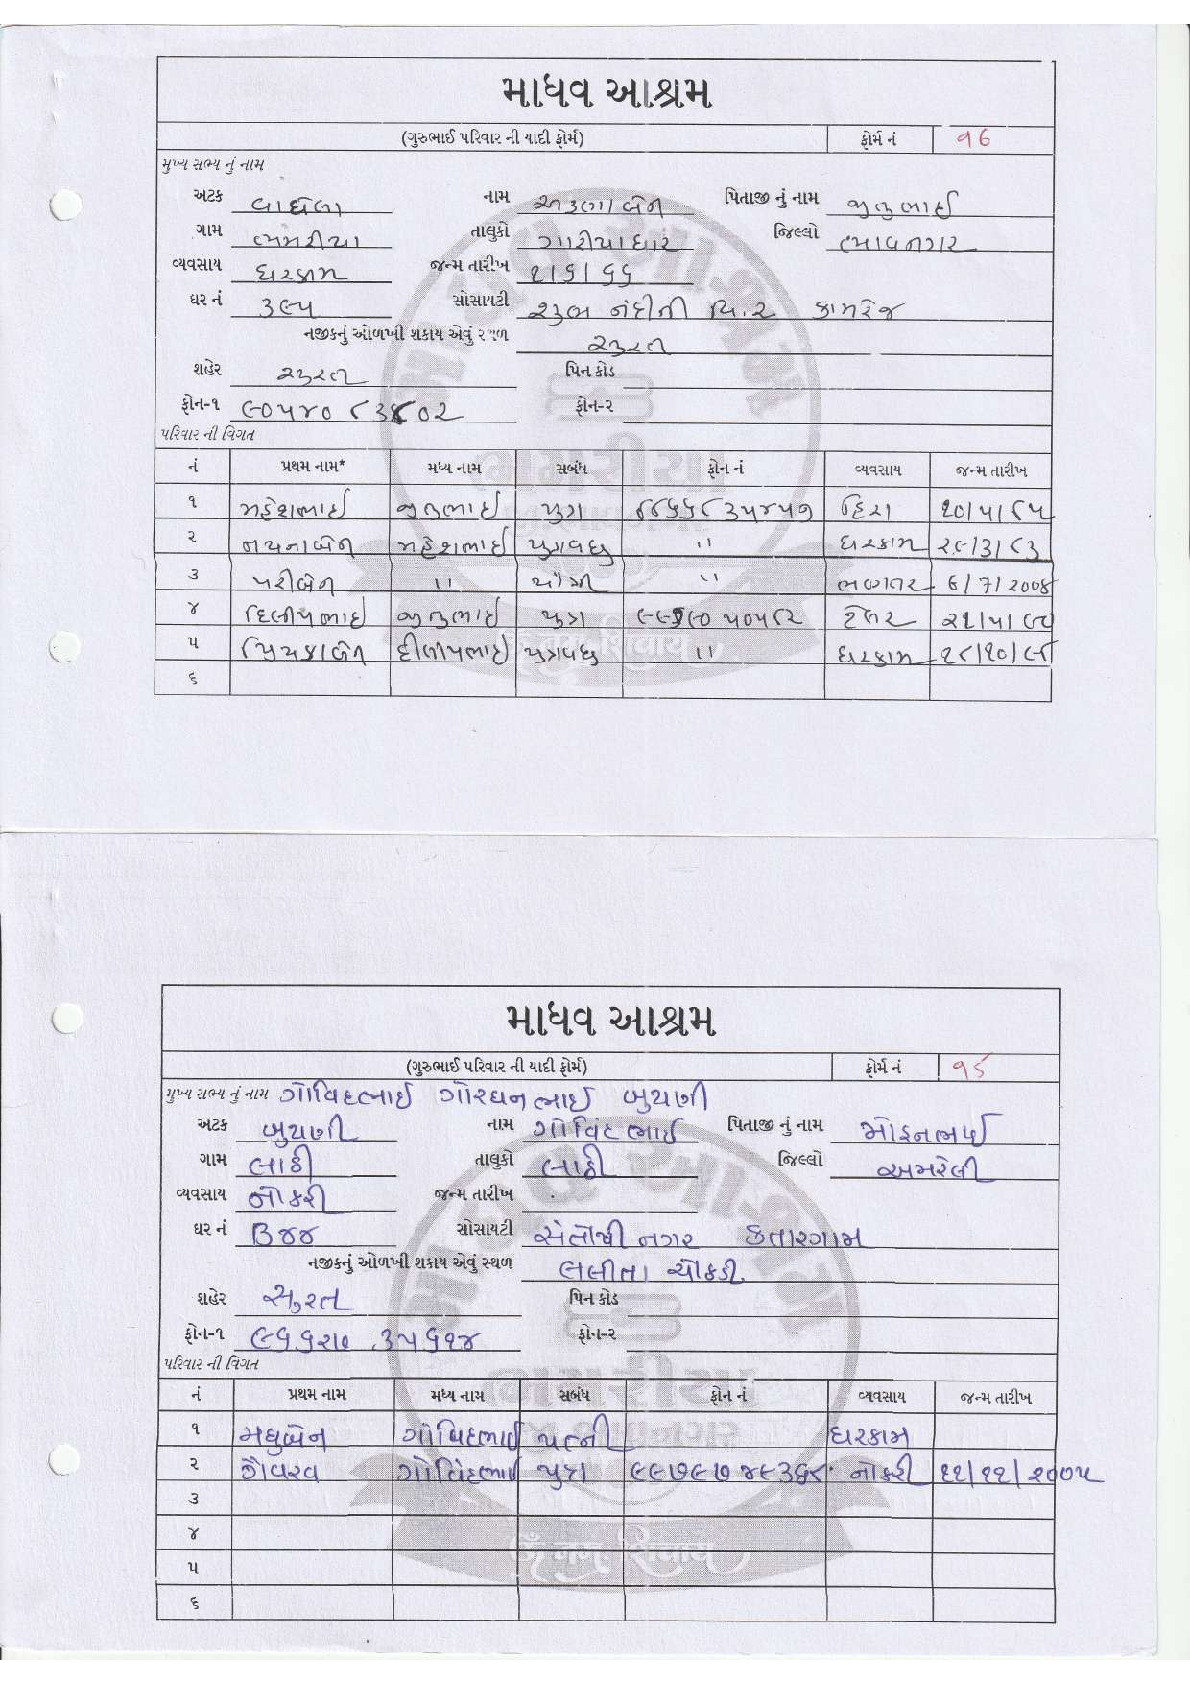 માધવ આશ્રમ
(ગુરુભાઈ પરિવાર ની યાદી ફોર્મ) ફોર્મ નં ૧૬
મુખ્ય સભ્ય નું નામ
અટક વાઘેલા નામ અરુણાબેન પિતાજી નું નામ જીતુભાઈ
ગામ ભમરીયા તાલુકો ગારીયાધાર જિલ્લો ભાવનગર
વ્યવસાય ઘરકામ જન્મ તારીખ ૧/૬/૬૬
ઘર નં ૩૯૫ સોસાયટી નંદીની વિ.ર કામરેજ
નજીકનું ઓળખી શકાય એવું સ્થળ સુરત
શહેર સુરત પિન કોડ
ફોન-૧ ફોન-૨
પરિવાર ની વિગત
નં પ્રથમ નામ* મધ્ય નામ સબંધ ફોન નં વ્યવસાય જન્મ તારીખ
૧ મહેશભાઈ જીતુભાઈ પુત્ર હિરા ૧૦/૫/૮૫
૨ નયનાબેન મહેશભાઈ પુત્રવધુ " ઘરકામ ૨૯/૩/૮૩
૩ પરીબેન " પૌત્રી " ભણતર ૬/7/૨૦૦૪
૪ દિલીપભાઇ જીતુભાઇ પુત્ર ટેલર
૫ દીલીપભાઇ પુત્રવધુ " ઘરકામ
૬
માધવ આશ્રમ
(ગુરુભાઈ પરિવાર ની યાદી ફોર્મ) ફોર્મ નં ૧૬
મુખ્ય સભ્ય નું નામ ગોવિંદભાઈ ગોરધનભાઈ બુધાણી
અટક બુધાણી નામ ગોવિંદભાઈ પિતાજી નું નામ
ગામ લાઠી તાલુકો લાઠી જિલ્લો અમરેલી
વ્યવસાય નોકરી જન્મ તારીખ
ઘર નં B૪૪ સોસાયટી સંતોષીનગર કતારગામ
નજીકનું ઓળખી શકાય એવું સ્થળ લલીતા ચોકડી
શહેર સુરત પિન કોડ
ફોન-૧ ફોન-૨
પરિવાર ની વિગત
નં પ્રથમ નામ મધ્ય નામ સબંધ ફોન નં વ્યવસાય જન્મ તારીખ
૧ મધુબેન ગોવિંદભાઈ પત્ની ઘરકામ
૨ ગૌરવ ગોવિંદભાઈ પુત્ર નોકરી ૧૧/૧૧/૨૦૦૫
૩
૪
૫
૬